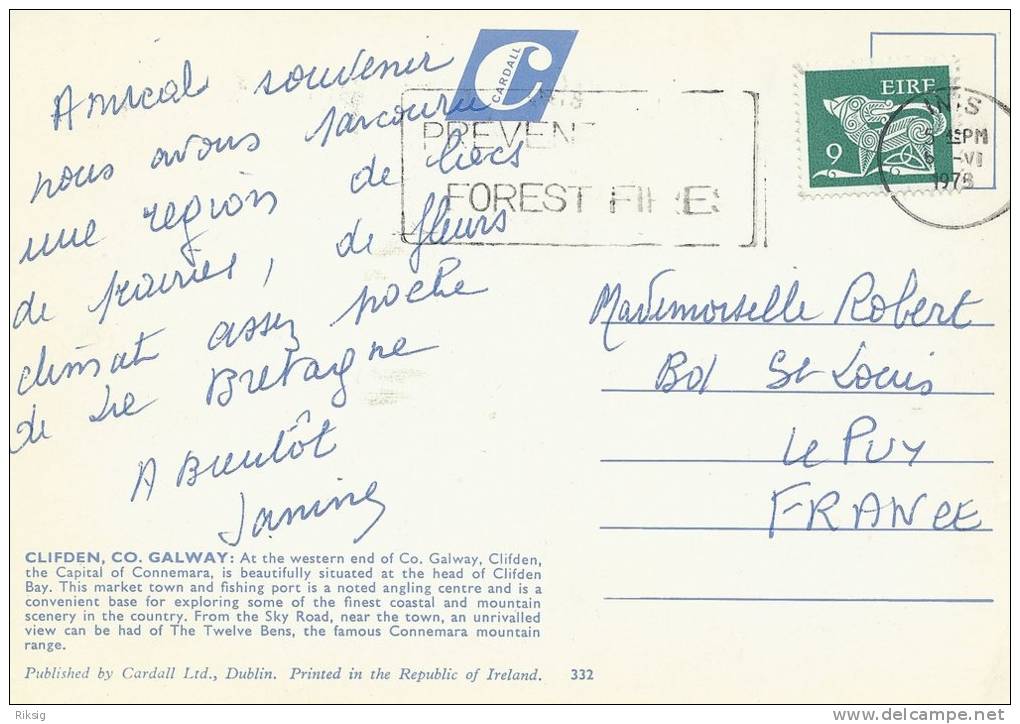 Amical souvenir
nous avons parcouru
une region de lacs
de prairies, de fleurs
climat assez proche
de la Bretagne
A Bientôt
Janine
CARDALL
PREVENT
FOREST FIRES
EIRE
9
INIS
5 15PM
6 -VI
1978
Mademoiselle Robert
Bd St Louis
Le PUY
FRANCE
CLIFDEN, CO. GALWAY: At the western end of Co. Galway, Clifden,
the Capital of Connemara, is beautifully situated at the head of Clifden
Bay. This market town and fishing port is a noted angling centre and is a
convenient base for exploring some of the finest coastal and mountain
scenery in the country. From the Sky Road, near the town, an unrivalled
view can be had of The Twelve Bens, the famous Connemara mountain
range.
Published by Cardall Ltd., Dublin. Printed in the Republic of Ireland. 332
Riksig
delcampe.net